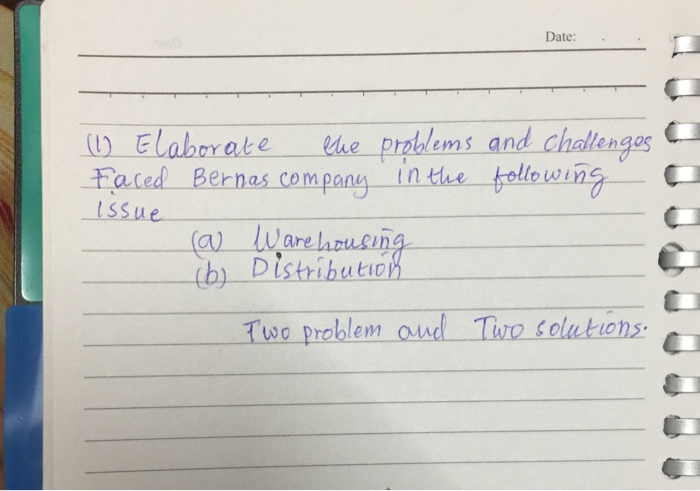 Date:
(1) Elaborate the problems and challenges
Faced Bernas company in the following
issue
(a) Warehousing
(b) Distribution
Two problem and Two solutions.